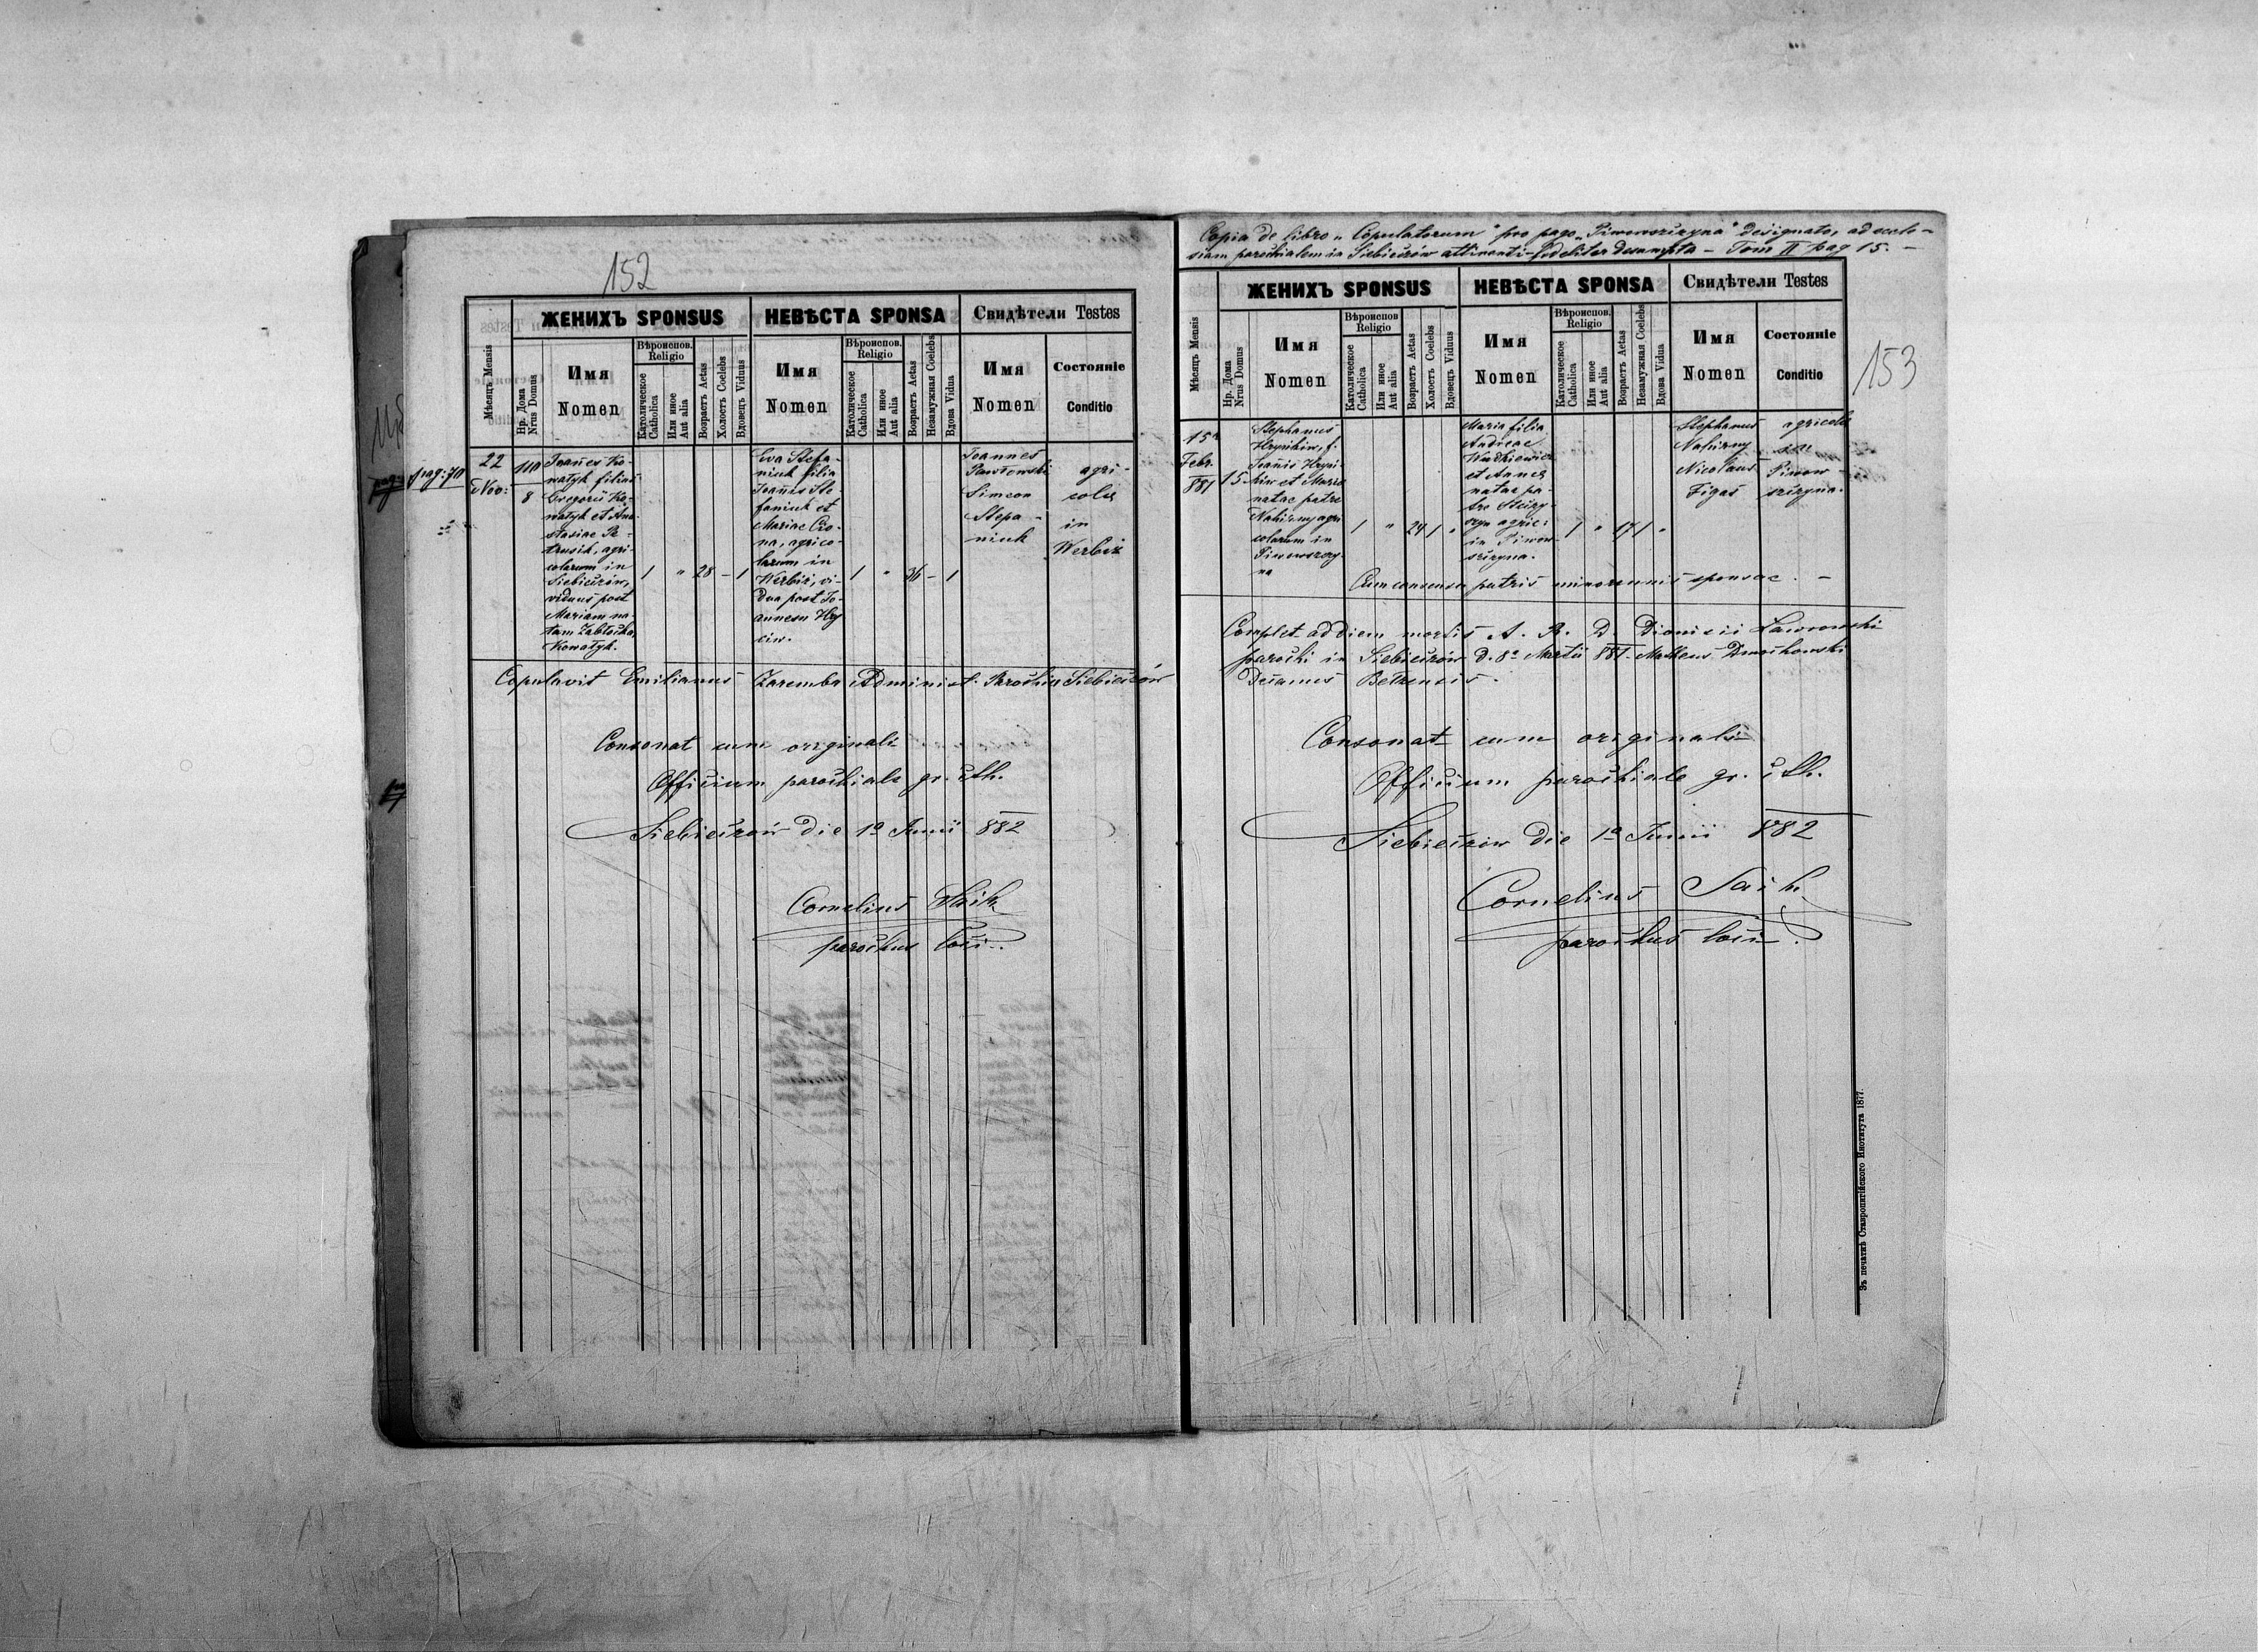 152
ЖЕНИХЪ SPONSUS
НЕВѢСТА SPONSA
Свидѣтели Testes
Мѣсяцъ Mensis
Нр. Дома
Nrus Domus
Имя
Nomen
Вѣроиспов.
Religio
Католическое
Catholica
Или иное
Aut alia
Возрастъ Aetas
Холостъ Coelebs
Вдовецъ Viduus
Имя
Nomen
Вѣроиспов.
Religio
Католическое
Catholica
Или иное
Aut alia
Возрастъ Aetas
Незамужная Coelebs
Вдова Vidua
Имя
Nomen
Состояніе
Conditio
pag: 70
22
Nov:
110
8
Joannes Ko-
watyk filius
Gregorii Ko-
watyk et Ana-
stasiae Pe-
trusik, agri-
colarum in
Siebieczów,
viduus post
Mariam na-
tam Zabłocka
Kowatyk.
1 " 28 – 1
Eva Stefa-
niuk filia
Joannis Ste-
faniuk et
Mariae
na, agrico-
larum in
Werbiż, vi-
dua post Jo-
annem Hry
ciw.
1 " 36 – 1
Joannes
Pawłowski
Simeon
Stepa-
niuk
agri-
colae
in
Werbiż
Copulavit Emilianus Zaremba Administ. Parochiae Siebieczów
Consonat cum originali
Officium parochiale gr. cth.
Siebieczów die 1a Junii 882
Cornelius Saik
parochus loci.
Copia de libro „Copulatorum" pro pago „Piwowszczyna" designato, ad eccle-
siam parochialem in Siebieczów attinenti – fideliter desumpta – Tom II pag 15. –
153
ЖЕНИХЪ SPONSUS
НЕВѢСТА SPONSA
Свидѣтели Testes
Мѣсяцъ Mensis
Нр. Дома
Nrus Domus
Имя
Nomen
Вѣроиспов
Religio
Католическое
Catholica
Или иное
Aut alia
Возрастъ Aetas
Холостъ Coelebs
Вдовецъ Viduus
Имя
Nomen
Вѣроиспов.
Religio
Католическое
Catholica
Или иное
Aut alia
Возрастъ Aetas
Незамужная Coelebs
Вдова Vidua
Имя
Nomen
Состояніе
Conditio
15a
Febr.
881
15
Stephanus
Hrynkiw, f.
Joannis Hryn-
kiw et Mariae
natae patre
Nahirny agri
colarum in
Piwowszczy-
na
1 " 24 1 "
Maria filia
Andreae
et Annae
natae pa-
tre
agric:
in Piwow-
szczyna.
1 " 17 1 "
Stephanus
Nahirny
Nicolaus
Figas
agricolae
in
Piwow-
szczyna.
Cum consensu patris minorennis sponsae. –
Complet. ad diem mortis A. R. D. Dionisii Lawrowski
parochi in Siebieczów d. 8a Martii 881. Matheus Dmochowski
Decanus Belzensis.
Consonat cum originali
Officium parochiale gr. cth.
Siebieczów die 1a Junii 882
Cornelius Saik
parochus loci.
Зъ печатнѣ Ставропигійского Института 1877